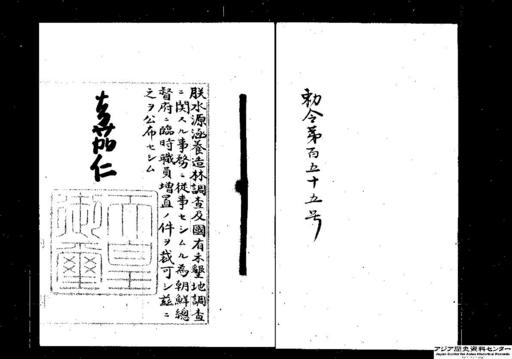 勅令第百五十五号
朕水源涵養造林調査及國有未墾地調査
ニ関スル事務ニ従事セシムル為朝鮮總
督府ニ臨時職員増置ノ件ヲ裁可シ茲ニ
之ヲ公布セシム
嘉仁
天皇
御璽
アジア歴史資料センター
Japan Center for Asian Historical Records